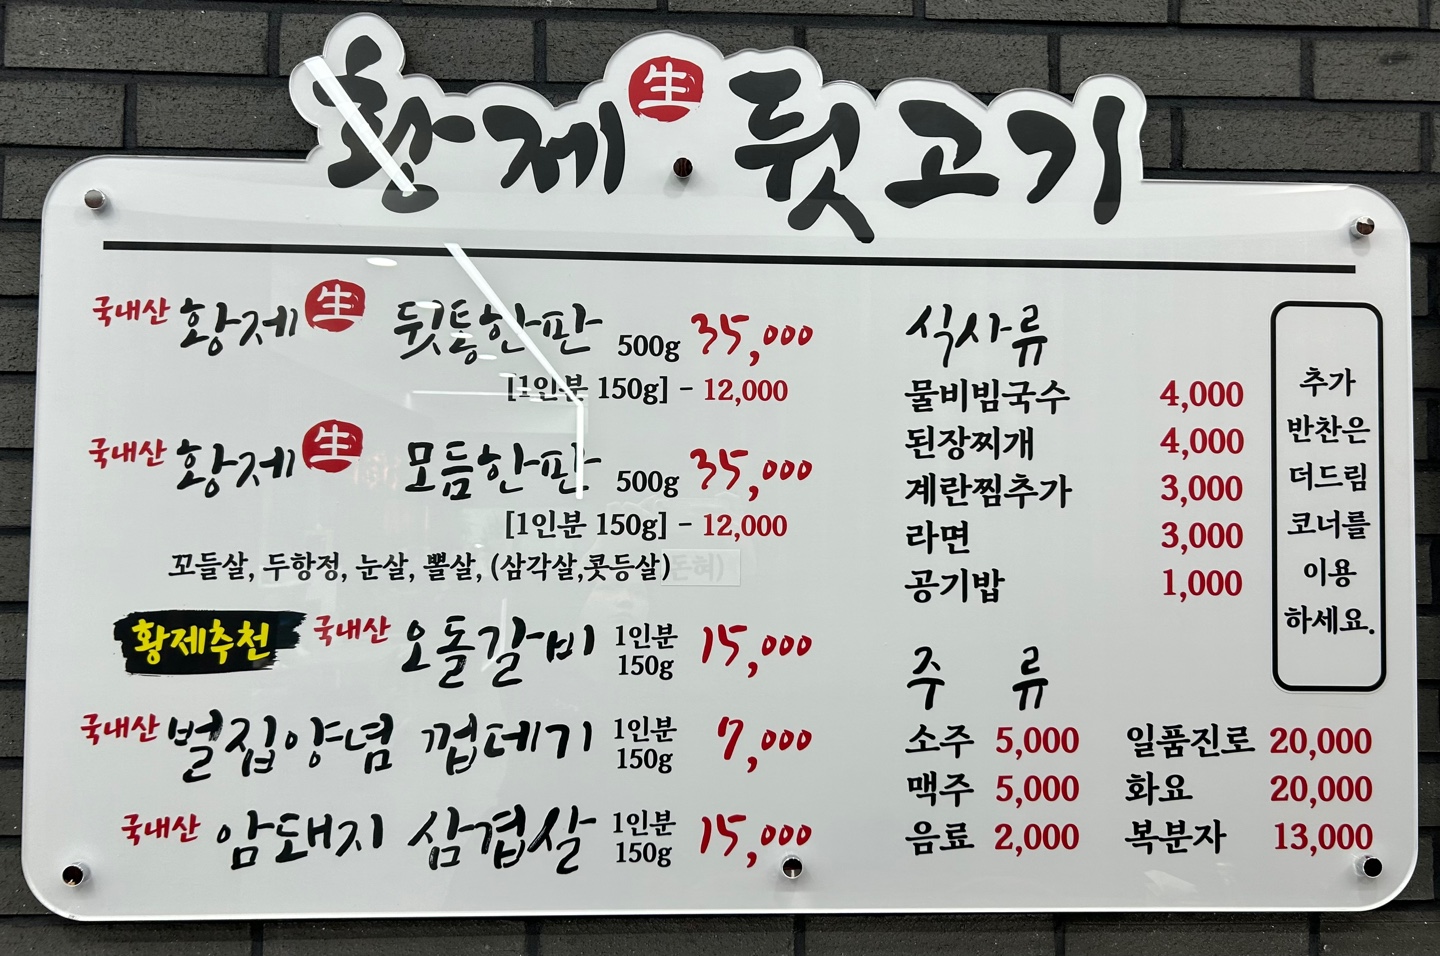 황제 生 뒷고기
국내산 황제 生 뒷통한판 500g 35,000
[1인분 150g] - 12,000
국내산 황제 生 모듬한판 500g 35,000
[1인분 150g] - 12,000
꼬들살, 두항정, 눈살, 뽈살, (삼각살,콧등살)
황제추천 국내산 오돌갈비 1인분 150g 15,000
국내산 벌집양념 껍데기 1인분 150g 7,000
국내산 암돼지 삼겹살 1인분 150g 15,000
식사류
물비빔국수 4,000
된장찌개 4,000
계란찜추가 3,000
라면 3,000
공기밥 1,000
추가
반찬은
더드림
코너를
이용
하세요.
주 류
소주 5,000 일품진로 20,000
맥주 5,000 화요 20,000
음료 2,000 복분자 13,000